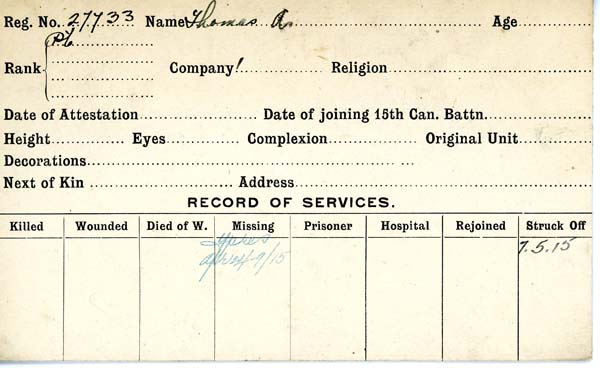 Reg. No. 27733 Name Thomas A. Age
Pte
Rank Company! Religion
Date of Attestation Date of joining 15th Can. Battn.
Height Eyes Complexion Original Unit
Decorations
Next of Kin Address
RECORD OF SERVICES.
Killed Wounded Died of W. Missing Prisoner Hospital Rejoined Struck Off
Ypres 7.5.15